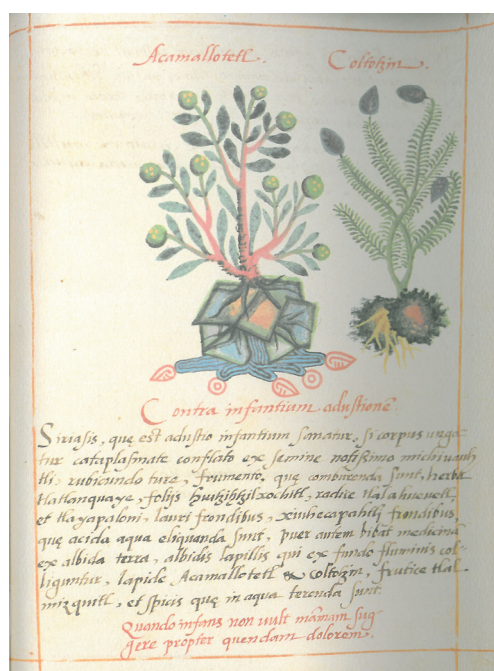 Acamallotetl. Coltotzin.
Contra infantium adustionē.
Siriasis, que est adustio infantium sanatur, si corpus unga-
tur cataplasmate conflato ex semine notissimo michivauh
tli, rubicundo ture, frumento, que comburenda sunt, herba
tlatlanquaye, folijs huitzihtzilxochitl, radice tlalahuevetl,
et tlayapaloni, lauri frondibus, xiuhecapahtli frondibus
que acida aqua eliquanda sunt, puer autem bibat medicinā
ex albida terra, albidis lapillis qui ex fundo fluminis col-
liguntur, lapide Acamallotetl & coltotzin, frutice tlal
mizquitl, et spicis que in aqua terenda sunt.
Quando infans non vult mamam sug
gere propter quendam dolorem.